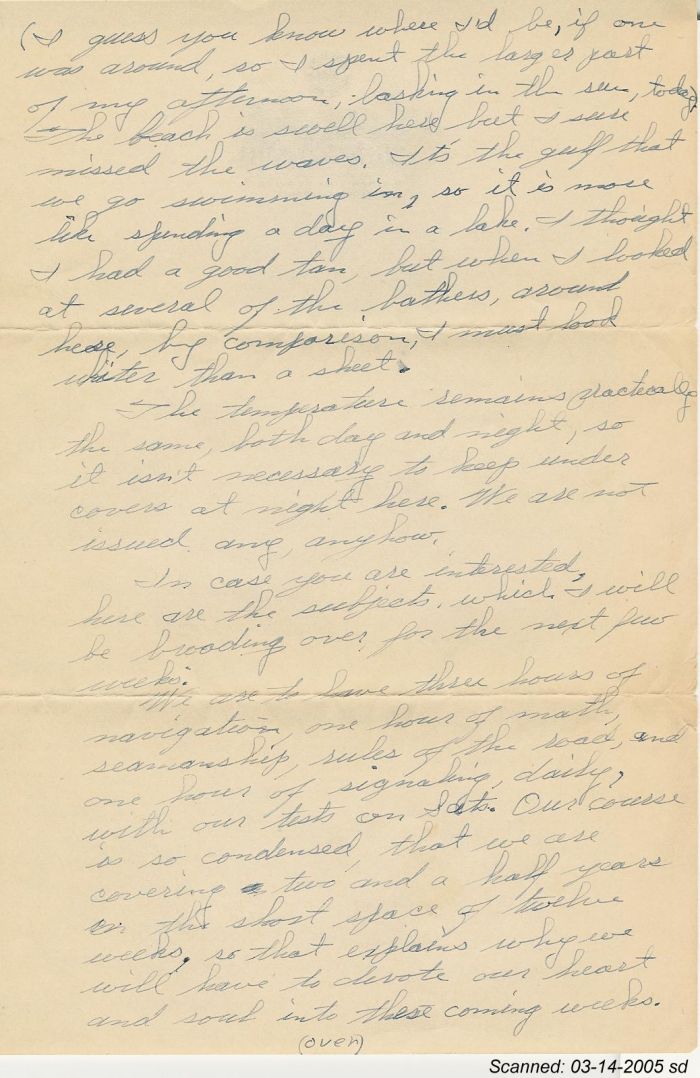 (I guess you know where I'd be, if one
was around, so I spent the larger part
of my afternoon, basking in the sun, today)
The beach is swell here but I sure
missed the waves. It's the gulf that
we go swimming in, so it is more
like spending a day in a lake. I thought
I had a good tan, but when I looked
at several of the bathers, around
here, by comparison, I must look
whiter than a sheet.
The temperature remains practically
the same, both day and night, so
it isn't necessary to keep under
covers at night here. We are not
issued any, anyhow.
In case you are interested,
here are the subjects, which I will
be brooding over, for the next few
weeks.
We are to have three hours of
navigation, one hour of math,
seamanship, rules of the road, and
one hour of signaling, daily,
with our tests on Sats. Our course
is so condensed, that we are
covering a two and a half years
in the short space of twelve
weeks, so that explains why we
will have to devote our heart
and soul into these coming weeks.
(over)
Scanned: 03-14-2005 sd